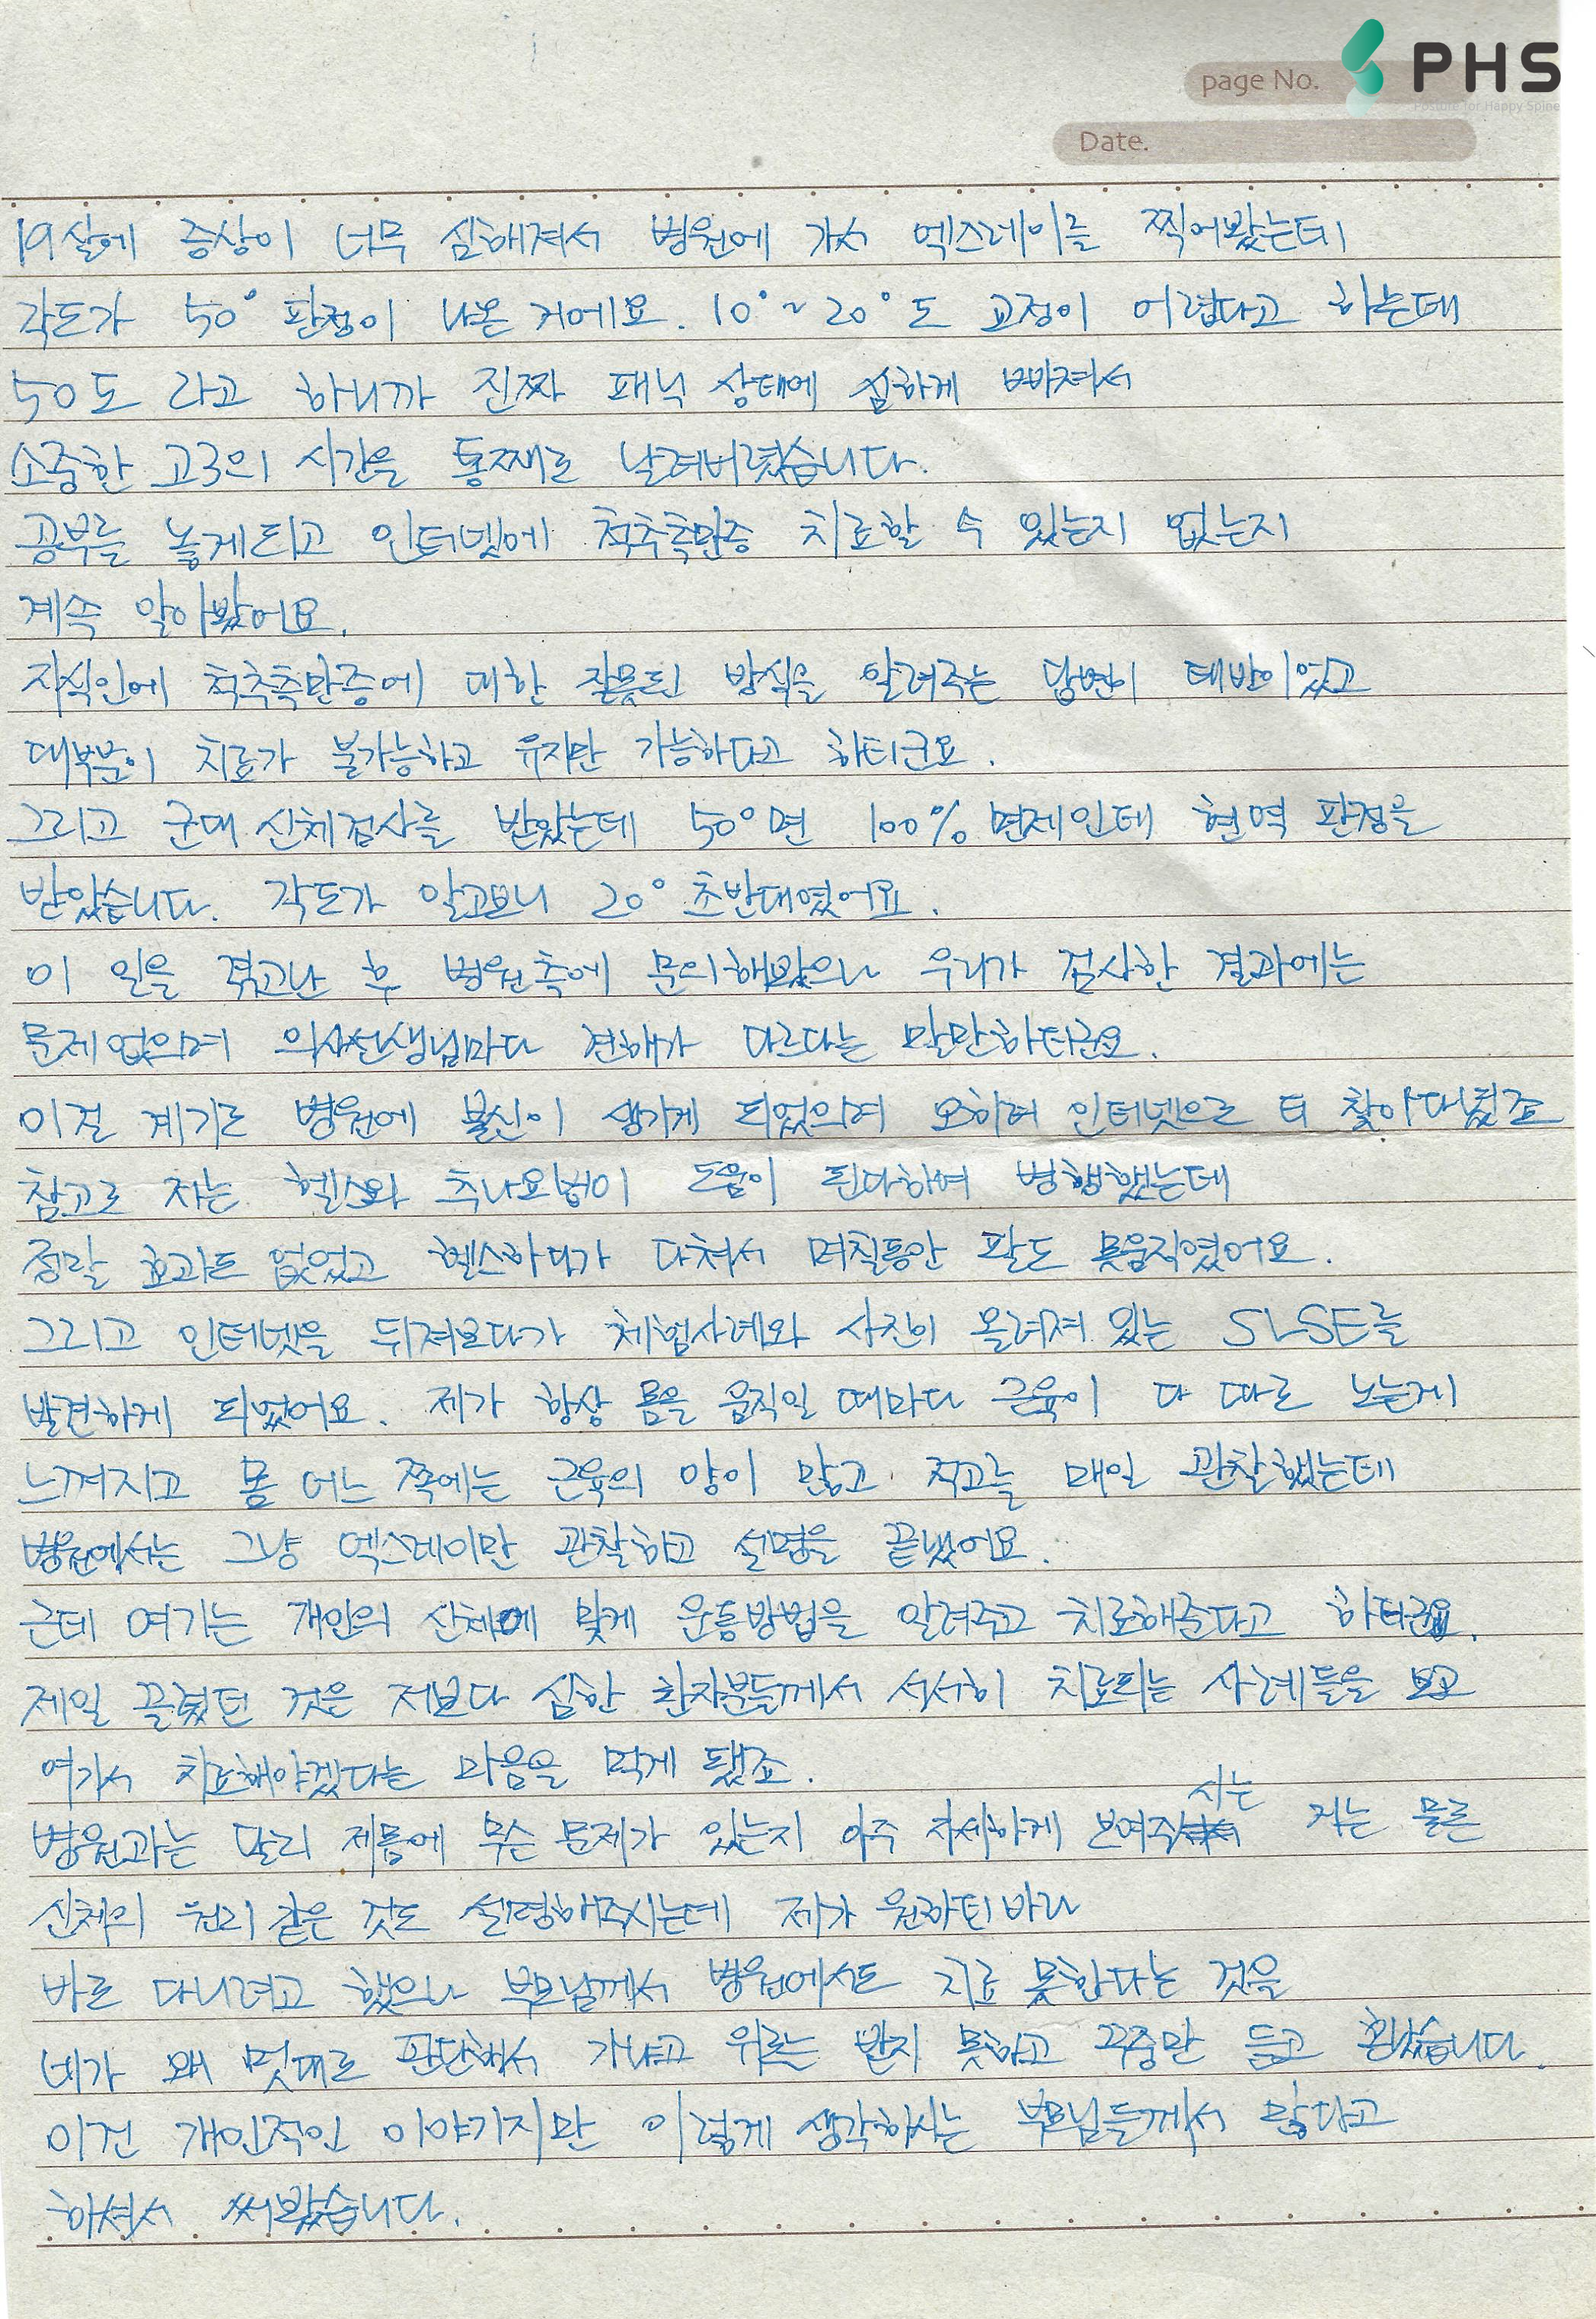 page No.
PHS
Posture for Happy Spine
Date.
19살에 증상이 너무 심해져서 병원에 가서 엑스레이를 찍어봤는데
각도가 50° 판정이 나온 거에요. 10°~20°도 교정이 어렵다고 하는데
50도 라고 하니까 진짜 패닉 상태에 심하게 빠져서
소중한 고3의 시간을 통째로 날려버렸습니다.
공부를 놓게되고 인터넷에 척추측만증 치료할 수 있는지 없는지
계속 알아봤어요.
지식인에 척추측만증에 대한 잘못된 방식을 알려주는 답변이 태반이었고
대부분이 치료가 불가능하고 유지만 가능하다고 하더군요.
그리고 군대 신체검사를 받았는데 50°면 100% 면제인데 현역 판정을
받았습니다. 각도가 알고보니 20° 초반대였어요.
이 일을 겪고난 후 병원측에 문의해봤으나 우리가 검사한 결과에는
문제없으며 의사선생님마다 견해가 다르다는 말만하더군요.
이걸 계기로 병원에 불신이 생기게 되었으며 오히려 인터넷으로 더 찾아다녔죠
참고로 저는 헬스와 추나요법이 도움이 된다하여 병행했는데
정말 효과도 없었고 헬스하다가 다쳐서 며칠동안 팔도 못움직였어요.
그리고 인터넷을 뒤져보다가 체험사례와 사진이 올려져 있는 SLSE를
발견하게 되었어요. 제가 항상 몸을 움직일 때마다 근육이 다 따로 노는게
느껴지고 몸 어느 쪽에는 근육의 양이 많고 적고를 매일 관찰했는데
병원에서는 그냥 엑스레이만 관찰하고 설명을 끝냈어요.
근데 여기는 개인의 신체에 맞게 운동방법을 알려주고 치료해준다고 하더군요.
제일 끌렸던 것은 저보다 심한 환자분들께서 서서히 치료되는 사례들을 보고
여기서 치료해야겠다는 마음을 먹게 됐죠.
병원과는 달리 제몸에 무슨 문제가 있는지 아주 자세하게 보여주시는 거는 물론
신체의 원리 같은 것도 설명해주시는데 제가 원하던바라
바로 다니려고 했으나 부모님께서 병원에서도 치료 못한다는 것을
네가 왜 멋대로 판단해서 가냐고 위로는 받지 못하고 꾸중만 듣고 혼났습니다.
이건 개인적인 이야기지만 이렇게 생각하시는 부모님들께서 많다고
하셔서 써봤습니다.